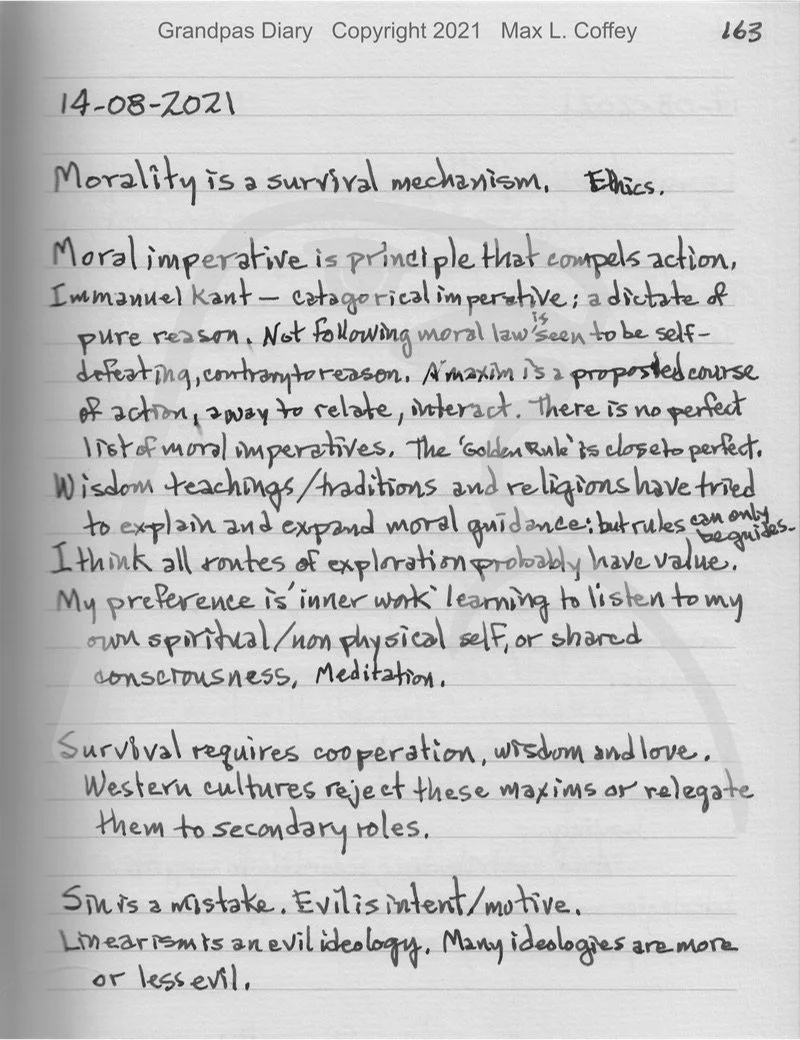 Grandpas Diary Copyright 2021 Max L. Coffey 163
14-08-2021
Morality is a survival mechanism. Ethics.
Moral imperative is principle that compels action.
Immanuel Kant — catagorical imperative; a dictate of
pure reason. Not following moral law is seen to be self-
defeating, contrary to reason. A 'maxim is a proposed course
of action, a way to relate, interact. There is no perfect
list of moral imperatives. The 'Golden Rule' is close to perfect.
Wisdom teachings/traditions and religions have tried
to explain and expand moral guidance; but rules can only
be guides.
I think all routes of exploration probably have value.
My preference is 'inner work' learning to listen to my
own spiritual/non physical self, or shared
consciousness, Meditation.
Survival requires cooperation, wisdom and love.
Western cultures reject these maxims or relegate
them to secondary roles.
Sin is a mistake. Evil is intent/motive.
Linearism is an evil ideology. Many ideologies are more
or less evil.